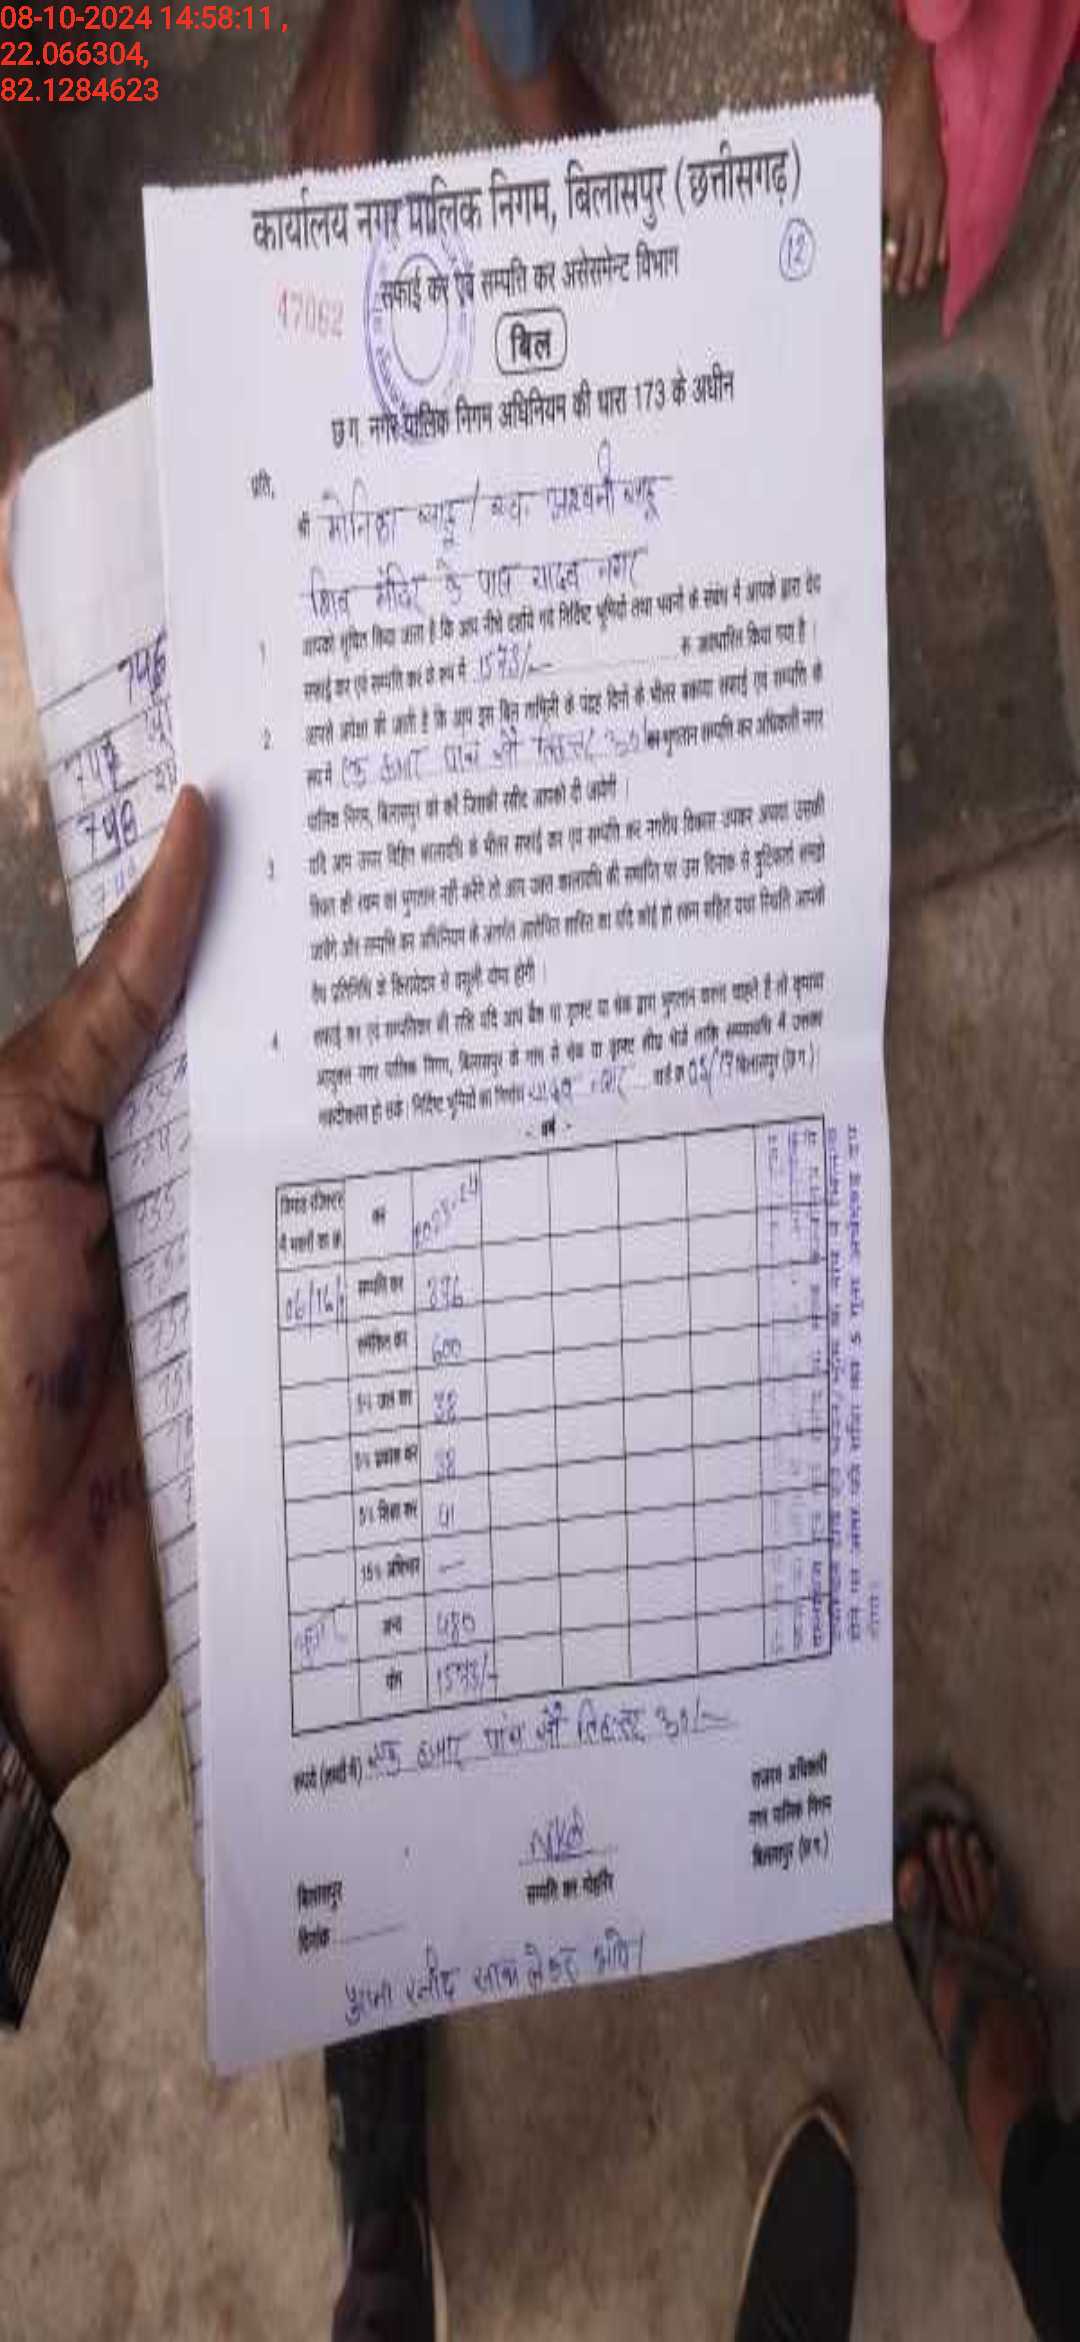 08-10-2024 14:58:11 ,
22.066304,
82.1284623
कार्यालय नगर पालिक निगम, बिलासपुर (छत्तीसगढ़)
12
सफाई कर एवं सम्पत्ति कर असेसमेन्ट विभाग
47062
बिल
छ.ग. नगर पालिक निगम अधिनियम की धारा 173 के अधीन
प्रति,
श्री मोनिका साहू / स्व. अश्वनी साहू
शिव मंदिर के पास यादव नगर
1 आपको सूचित किया जाता है कि आप नीचे दर्शाये गये निर्दिष्ट भूमियों तथा भवनों के संबंध में आपके द्वारा देय
सफाई कर एवं सम्पत्ति कर के रूप में 1573/- रु. आधारित किया गया है।
2 आपसे अपेक्षा की जाती है कि आप इस बिल तामिली के पंद्रह दिनों के भीतर बकाया सफाई एवं सम्पत्ति के
रूप में एक हजार पांच सौ तिहत्तर रू०/- का भुगतान सम्पत्ति कर अधिकारी नगर
पालिक निगम, बिलासपुर को करें जिसकी रसीद आपको दी जायेगी।
3 यदि आप उपर विहित कालावधि के भीतर सफाई कर एवं सम्पत्ति कर नगरीय विकास उपकर अथवा उसकी
किश्त की रकम का भुगतान नहीं करेंगे तो आप उक्त कालावधि की समाप्ति पर उस दिनांक से त्रुटिकर्ता समझे
जायेंगे और सम्पत्ति कर अधिनियम के अंतर्गत आरोपित शास्ति का यदि कोई हो रकम सहित यथा स्थिति आपकी
वैध प्रतिनिधि के किरायेदार से वसूली योग्य होगी।
4 सफाई कर एवं सम्पत्तिकर की राशि यदि आप बैंक या ड्राफ्ट या चेक द्वारा भुगतान करना चाहते हैं तो कृपया
आयुक्त नगर पालिक निगम, बिलासपुर के नाम से चेक या ड्राफ्ट शीघ्र भेजें ताकि समयावधि में उसका
नकदीकरण हो सके। निर्दिष्ट भूमियों का विवरण यादव नगर वार्ड क्र. 05/17 बिलासपुर (छ.ग.)।
- वर्ष -
डिमांड रजिस्टर में भवनों का क्र. कर 2023-24
06/16/ सम्पत्ति कर 376
समेकित कर 600
5% जल कर 38
5% प्रकाश कर 38
5% शिक्षा कर 41
15% अधिभार —
अन्य 480
योग 1573/-
रूपये (शब्दों में) एक हजार पांच सौ तिहत्तर रू०/-
राजस्व अधिकारी
नगर पालिक निगम
बिलासपुर (छ.ग.)
सम्पत्ति कर मोहर्रिर
बिलासपुर
दिनांक
पुरानी रसीद साथ लेकर आवें।
746
747
748
735